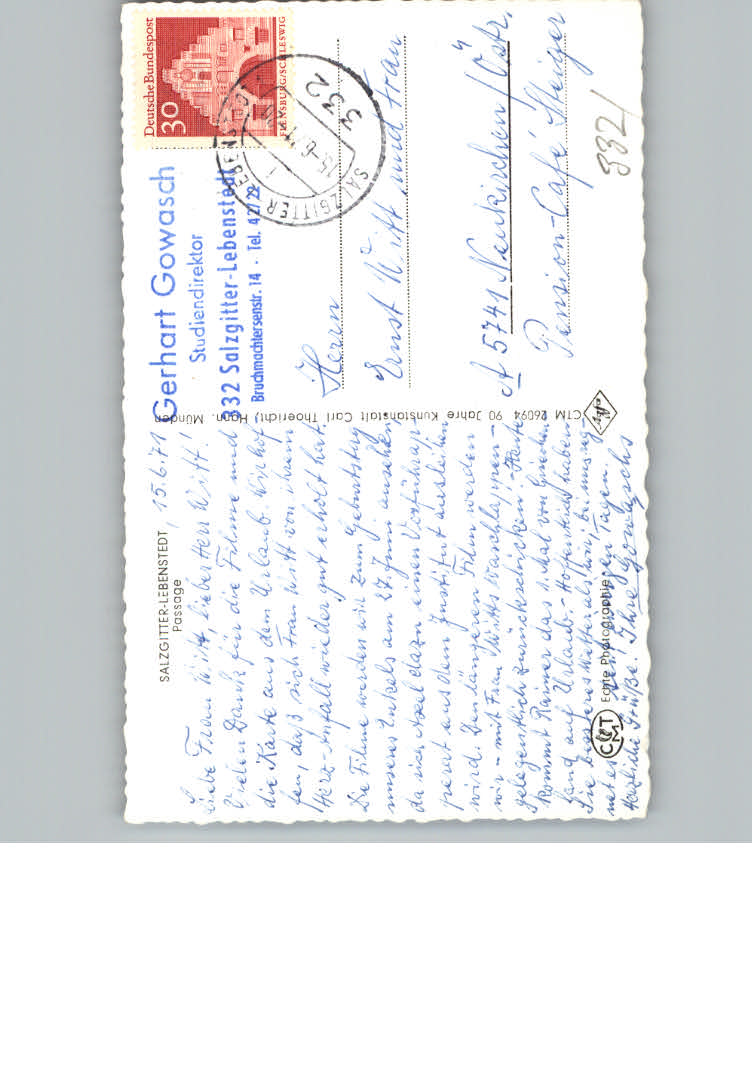 SALZGITTER-LEBENSTEDT
Passage
15.6.71
Liebe Frau Witt, lieber Herr Witt!
Vielen Dank für die Filme und
die Karte aus dem Urlaub. Wir hof-
fen, daß sich Frau Witt von ihrem
Herz-Anfall wieder gut erholt hat.
Die Filme werden wir zum Geburtstag
unseres Enkels am 27. Juni ansehen
da sich Axel dazu einen Vorführap-
parat aus dem Institut ausleihen
wird. Den längeren Film werden
wir - mit Frau Witts
gelegentlich zurückschicken! - Heute
kommt Rainer das 1. Mal von Griechen
land auf Urlaub. - Hoffentlich haben
Sie besseres Wetter als wir, bei uns reg-
net es seit einigen Tagen.
Herzliche Grüße. Ihre Gowaschs
CTM
Echte Photographie
CTM 26094 90 Jahre Kunstanstalt Carl Thoericht, Hann. Münden
Agfa
Gerhart Gowasch
Studiendirektor
332 Salzgitter-Lebenstedt
Bruchmachtersenstr. 14 · Tel. 4 27 22
Deutsche Bundespost
30
FLENSBURG/SCHLESWIG
332
SALZGITTER LEBENSTEDT
15-6.71
Herrn
Ernst Witt und Frau
A 5741 Neukirchen / Östr.
Pension-Café Steiger
332/